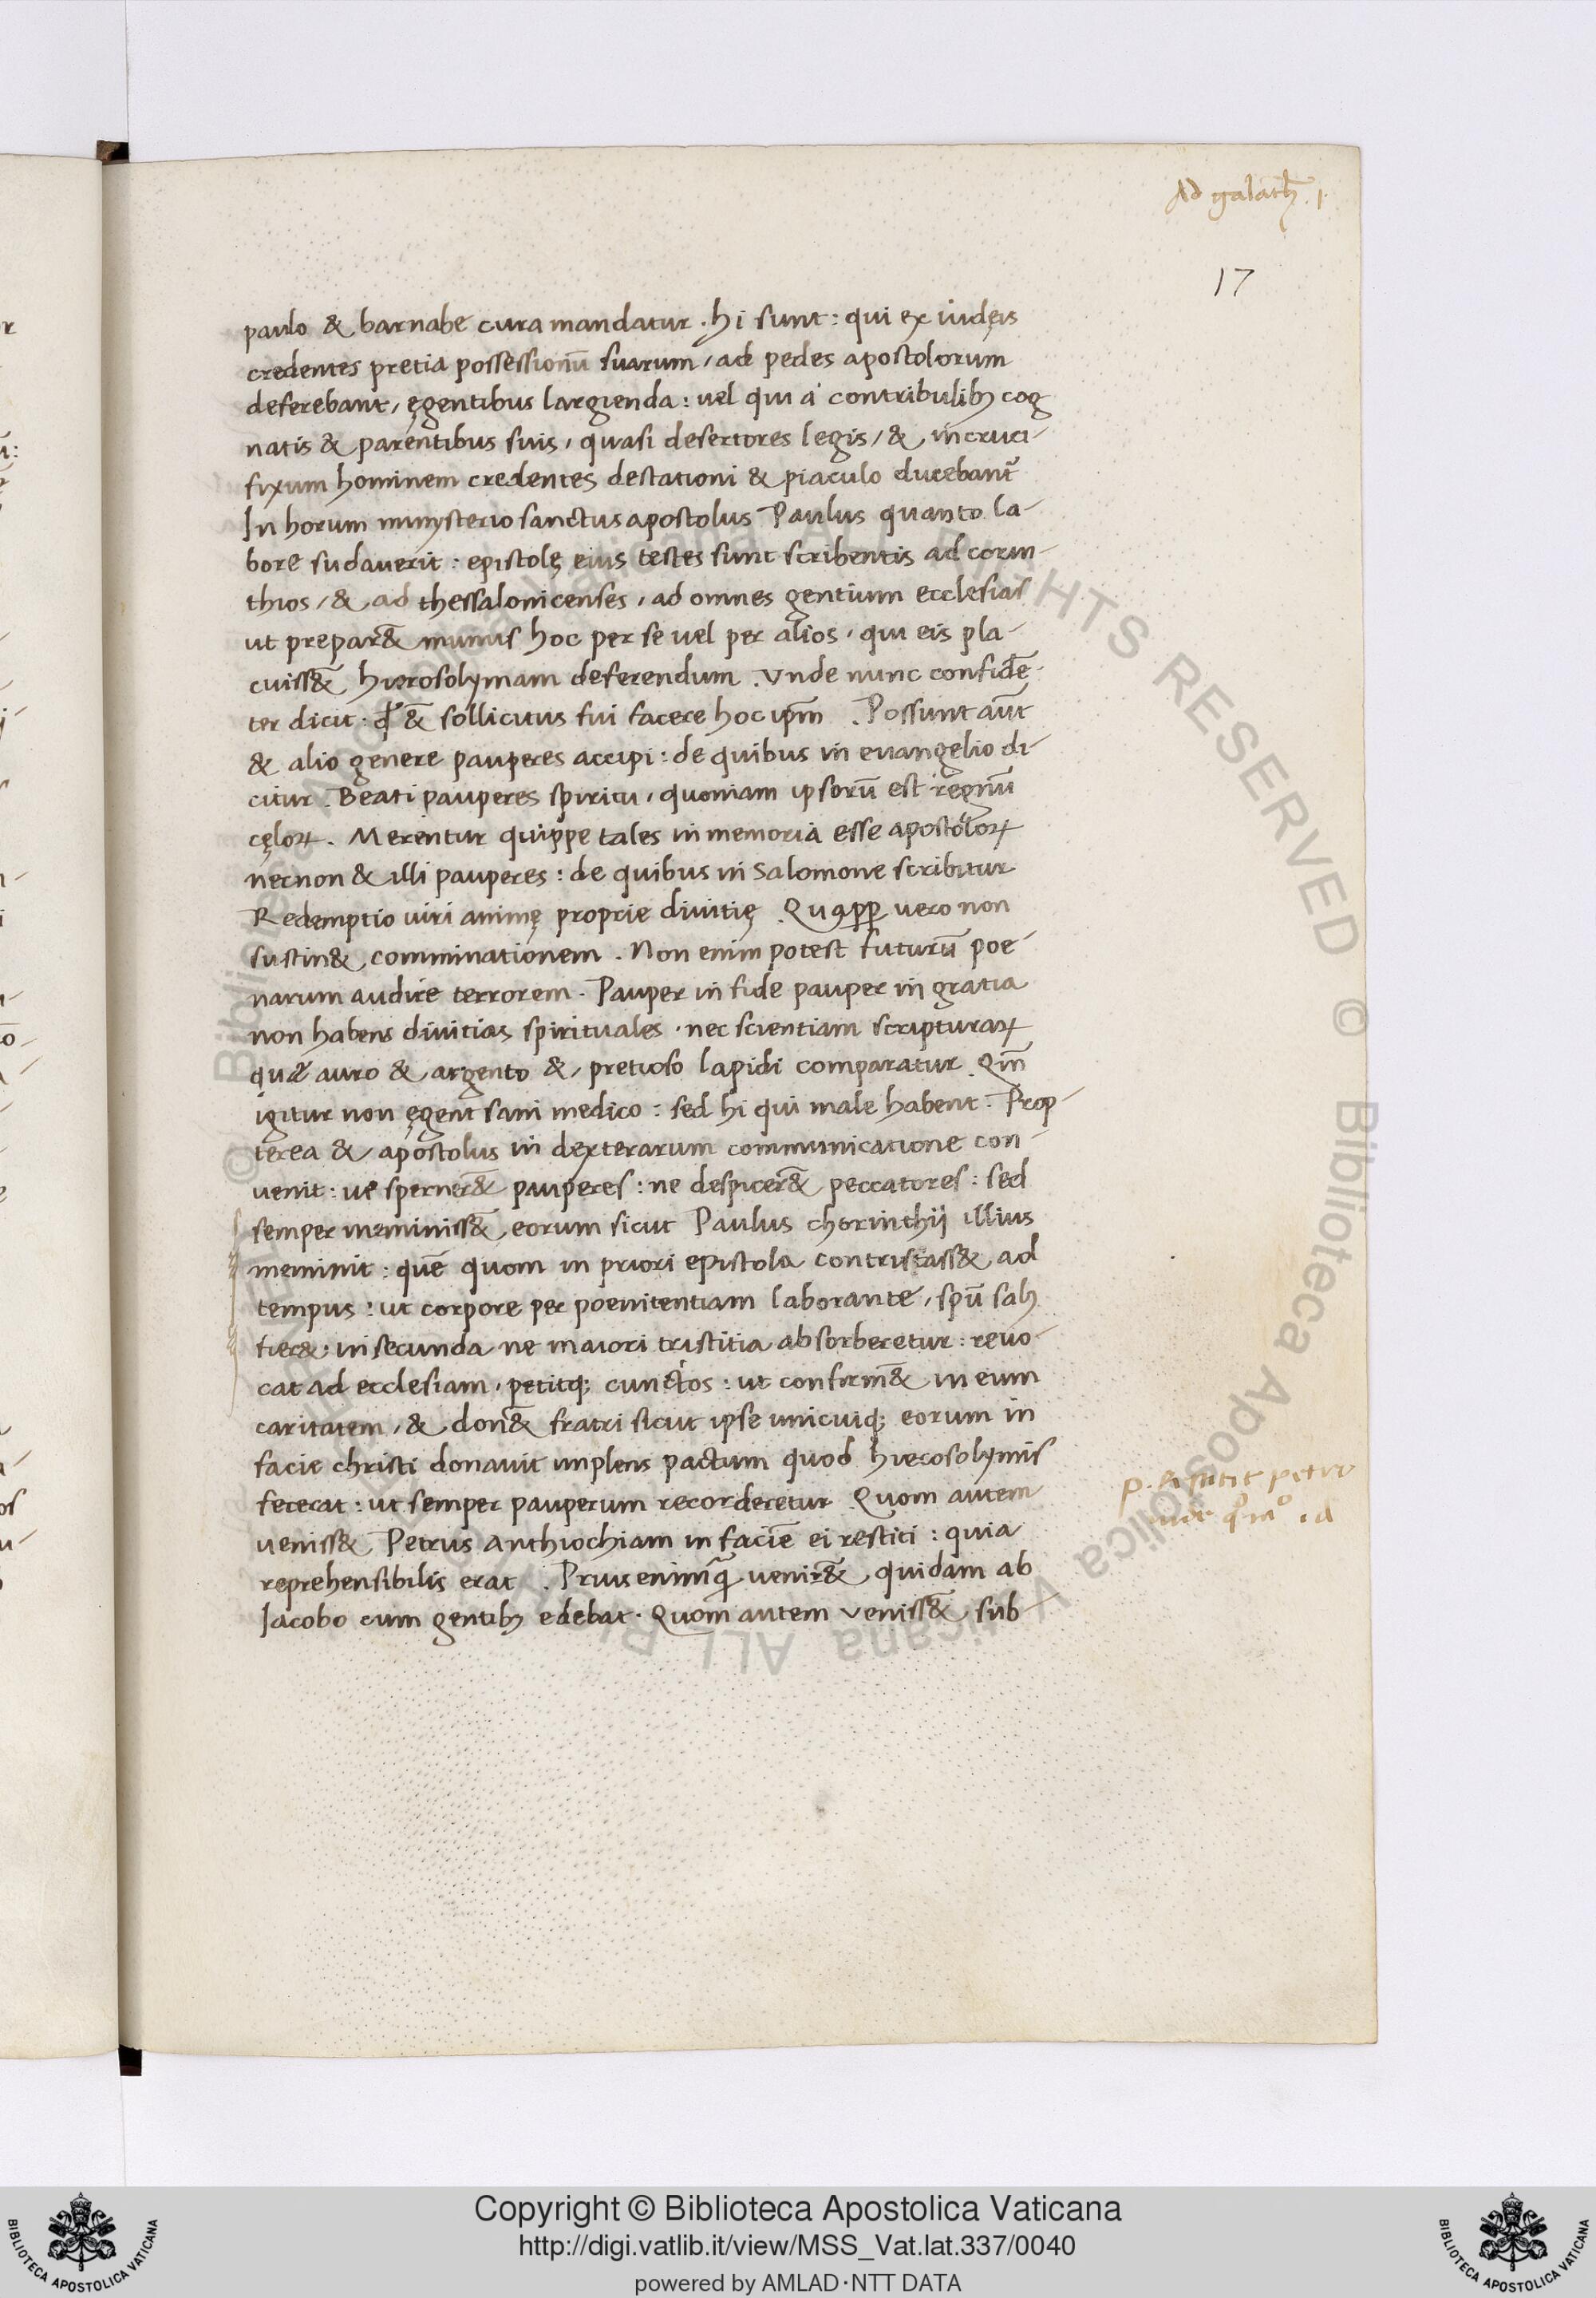 Ad galath̄. 1.
17
paulo & barnabe cura mandatur. hi sunt: qui ex iudęis
credentes pretia possessionū suarum, ad pedes apostolorum
deferebant, ęgentibus largienda: uel qui a contribulibꝫ cog
natis & parentibus suis, quasi desertores legis, & in cruci-
fixum hominem credentes destationi & piaculo ducebant᷑
In horum mimysterio sanctus apostolus Paulus quanto la-
bore sudauerit: epistolę eius testes sunt scribentis ad corin-
thios, & ad thessalonicenses, ad omnes gentium ecclesias
ut prepar&̄ munus hoc per se uel per alios, qui eis pla-
cuiss&̄ hierosolymam deferendum. Vnde nunc confidē-
ter dicit: qđ &̄ sollicitus fui facere hoc ip̄m. Possunt aūt
& alio genere pauperes accipi: de quibus in euangelio di-
citur. Beati pauperes spiritu, quoniam ipsorū est regnū
cęloꝝ. Merentur quippe tales in memoria esse apostoloꝝ
necnon & illi pauperes: de quibus in Salomone scribitur
Redemptio uiri animę proprie diuitię. Qui paꝑ uero non
sustin& comminationem. Non enim potest futurū poe-
narum audire terrorem. Pauper in fide pauper in gratia
non habens diuitias spirituales, nec scientiam scripturaꝝ
quæ auro & argento & pretioso lapidi comparatur. Qm̄
igitur non ęgent sani medico: sed hi qui male habent. Prop-
terea & apostolus in dexterarum communicatione con-
uenit: ne sperner&̄ pauperes: ne despicer&̄ peccatores: sed
semper meminiss&̄ eorum sicut Paulus chorinthij illius
meminit: quē quom in priori epistola contristass& ad
tempus: ut corpore per poenitentiam laborante, spū salꝫ
fier&: in secunda ne maiori tristitia absorberetur: reuo-
cat ad ecclesiam, petitqꝫ cunctos: ut confirm&̄ in eum
caritatem, & don&̄ fratri sicut ipse unicuiqꝫ eorum in
facie christi donauit implens pactum quod hierosolymis
fecerat: ut semper pauperum recorderetur Quom autem
ueniss& Petrus Anthiochiam in faciē ei restiti: quia
reprehensibilis erat. Prius enim q̄ uenir&̄ quidam ab
Jacobo cum gentibꝫ edebat. Quom autem ueniss&̄, sub
p. restitit petro